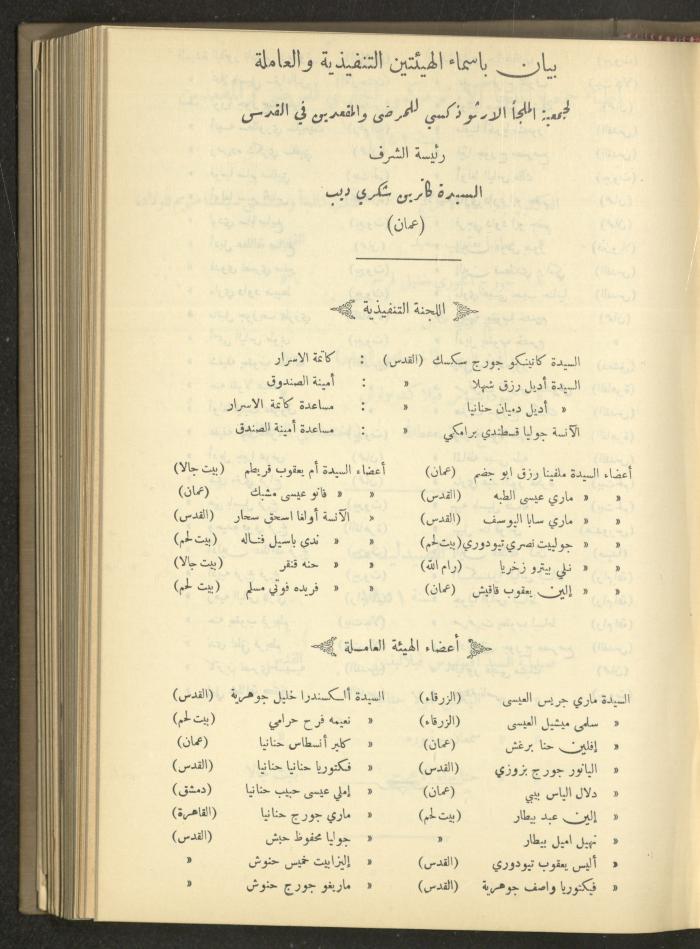 بيان باسماء الهيئتين التنفيذية والعاملة
لجمعية الملجأ الارثوذكسي للمرضى والمقعدين في القدس
رئيسة الشرف
السيدة كاترين شكري ديب
(عمان)
اللجنة التنفيذية
السيدة كاتينكو جورج سكسك (القدس) : كاتمة الاسرار
السيدة أديل رزق شهلا » : أمينة الصندوق
» أديل دميان حنانيا » : مساعدة كاتمة الاسرار
الآنسة جوليا قسطندي برامكي » : مساعدة أمينة الصندق
أعضاء السيدة ملفينا رزق ابو جضم (عمان) أعضاء السيدة أم يعقوب قريطم (بيت جالا)
» » ماري عيسى الطبه (القدس) » » فانو عيسى مشبك (عمان)
» » ماري سابا اليوسف (القدس) » الآنسة أولغا اسحق سحار (القدس)
» » جولييت نصري تيودوري (بيت لحم) » » ندى باسيل فناله (بيت لحم)
» » نلي بيترو زخريا (رام الله) » » حنه قنقر (بيت جالا)
» » إلين يعقوب قاقيش (عمان) » » فريده فوتي مسلم (بيت لحم)
أعضاء الهيئة العامــلة
السيدة ماري جريس العيسى (الزرقاء) السيدة ألكسندرا خليل جوهرية (القدس)
» سلمى ميشيل العيسى (الزرقاء) » نعيمه فرح حرامي (بيت لحم)
» إفلين حنا برغش (عمان) » كلير أنسطاس حنانيا (عمان)
» اليانور جورج بزوزي (القدس) » فكتوريا حنانيا حنانيا (القدس)
» دلال الياس بيبي (عمان) » إملي عيسى حبيب حنانيا (دمشق)
» إلين عبد بيطار (بيت لحم) » ماري جورج حنانيا (القاهرة)
» نهيل اميل بيطار » » جوليا محفوظ حبش (القدس)
» أليس يعقوب تيودوري (القدس) » إليزابيت خميس حنوش »
» فيكتوريا واصف جوهرية (القدس) » ماريغو جورج حنوش »